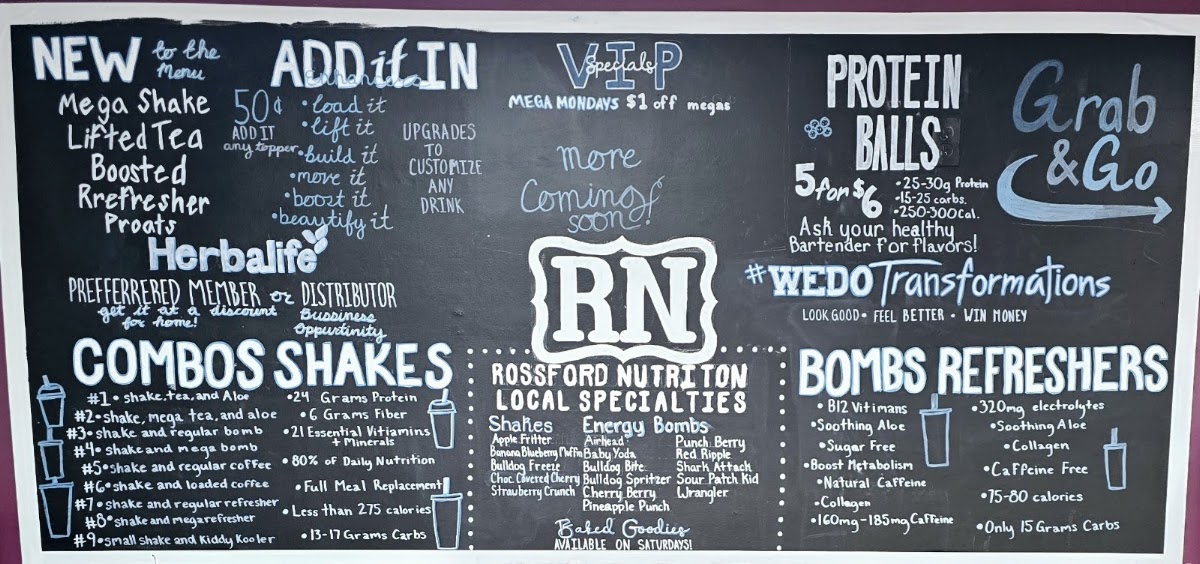 NEW to the Menu
Mega Shake
Lifted Tea
Boosted
Rrefresher
Proats
ADD it IN
Enhancers
50¢
ADD IT
any topper
• load it
• lift it
• build it
• move it
• boost it
• beautify it
UPGRADES
TO
CUSTOMIZE
ANY
DRINK
VIP
Specials
MEGA MONDAYS $1 off megas
more
Coming
soon!
PROTEIN
BALLS
5 for $6
• 25-30g Protein
• 15-25 carbs.
• 250-300Cal.
Ask your healthy
Bartender for flavors!
Grab
& Go
Herbalife
PREFFERRERED MEMBER or DISTRIBUTOR
get it at a discount
for home!
Bussiness
Oppurtinity
RN
#WEDO Transformations
LOOK GOOD • FEEL BETTER • WIN MONEY
COMBOS
#1 • shake, tea, and Aloe
#2 • shake, mega tea, and aloe
#3 • shake and regular bomb
#4 • shake and mega bomb
#5 • shake and regular coffee
#6 • shake and loaded coffee
#7 • shake and regular refresher
#8 • shake and mega refresher
#9 • small shake and Kiddy Kooler
SHAKES
• 24 Grams Protein
• 6 Grams Fiber
• 21 Essential Vitiamins
+ Minerals
• 80% of Daily Nutrition
• Full Meal Replacement
• Less than 275 calories
• 13-17 Grams Carbs
ROSSFORD NUTRITON
LOCAL SPECIALTIES
Shakes
Apple Fritter
Banana Blueberry Muffin
Bulldog Freeze
Choc Covered Cherry
Strawberry Crunch
Energy Bombs
Airhead
Baby Yoda
Bulldog Bite
Bulldog Spritzer
Cherry Berry
Pineapple Punch
Punch Berry
Red Ripple
Shark Attack
Sour Patch Kid
Wrangler
Baked Goodies
AVAILABLE ON SATURDAYS!
BOMBS
• B12 Vitimans
• Soothing Aloe
• Sugar Free
• Boost Metabolism
• Natural Caffeine
• Collagen
• 160mg-185mg Caffeine
REFRESHERS
• 320mg electrolytes
• Soothing Aloe
• Collagen
• Caffeine Free
• 75-80 calories
• Only 15 Grams Carbs